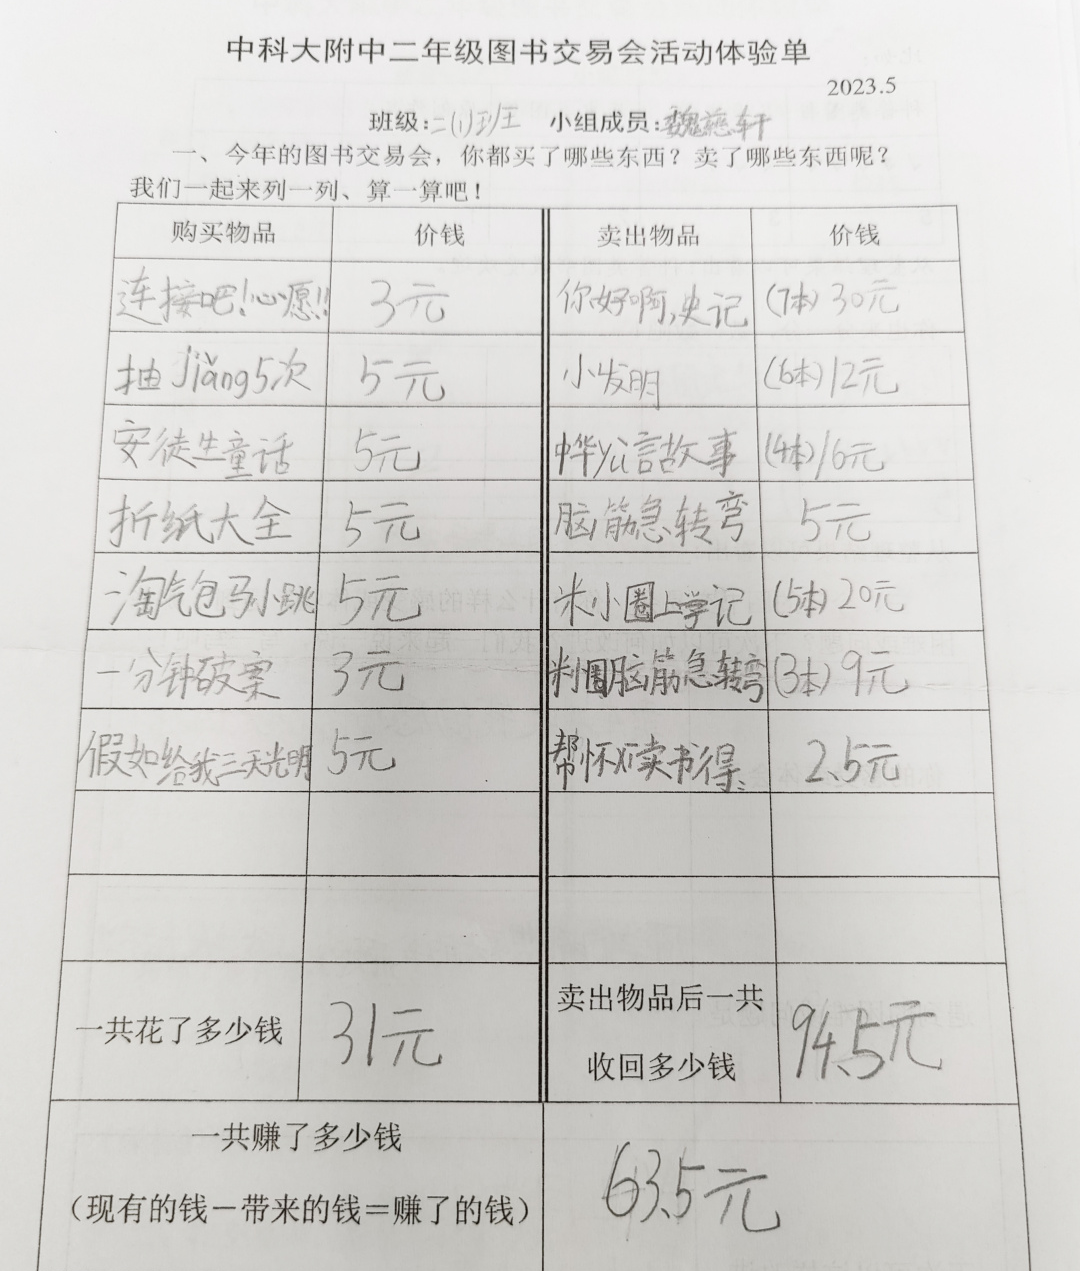 中科大附中二年级图书交易会活动体验单
2023.5
班级:二(1)班 小组成员:魏慈轩
一、今年的图书交易会，你都买了哪些东西？卖了哪些东西呢？
我们一起来列一列、算一算吧！
购买物品 价钱 卖出物品 价钱
连接吧!心愿!! 3元 你好啊,史记 (7本) 30元
抽jiǎng5次 5元 小发明 (6本) 12元
安徒生童话 5元 故事 (4本) 16元
折纸大全 5元 脑筋急转弯 5元
淘气包马小跳 5元 米小圈上学记 (5本) 20元
一分钟破案 3元 米小圈脑筋急转弯 (3本) 9元
假如给我三天光明 5元 读书得 2.5元
一共花了多少钱 31元 卖出物品后一共
收回多少钱 94.5元
一共赚了多少钱
（现有的钱－带来的钱＝赚了的钱） 63.5元